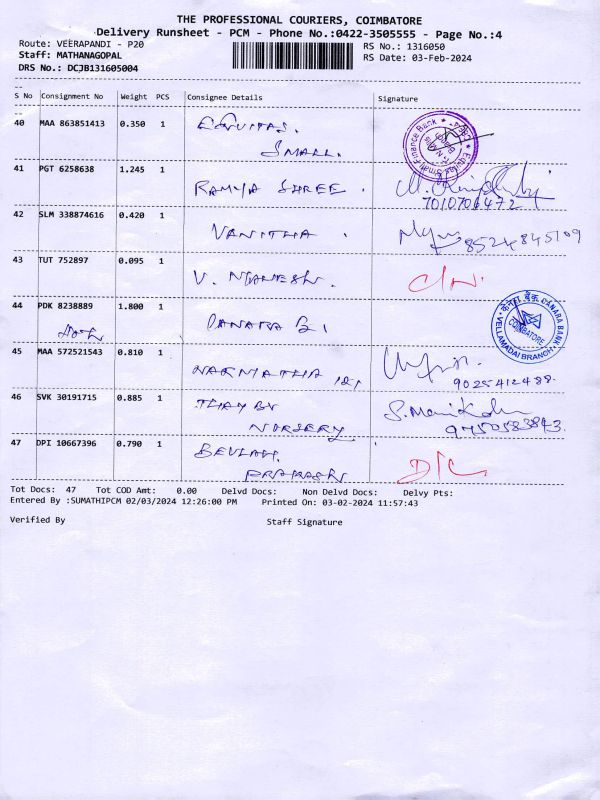 THE PROFESSIONAL COURIERS, COIMBATORE
Delivery Runsheet - PCM - Phone No.:0422-3505555 - Page No.:4
Route: VEERAPANDI - P20
RS No.: 1316050
Staff: MATHANAGOPAL
RS Date: 03-Feb-2024
DRS No.: DCJB131605004
S No Consignment No Weight PCS Consignee Details Signature
40 MAA 863851413 0.350 1 EQUITAS.
SMALL.
Equitas Small Finance Bank
41 PGT 6258638 1.245 1 RAMYA SHREE .
7010706472
42 SLM 338874616 0.420 1 VANITHA .
8524845109
43 TUT 752897 0.095 1 V. C/N.
44 PDK 8238889 1.800 1 CANARA B,
केनरा बैंक CANARA BANK
COIMBATORE
VELLAMADAI BRANCH
45 MAA 572521543 0.810 1
9025412488.
46 SVK 30191715 0.885 1 S. Manikdan
NURSERY 9750583843.
47 DPI 10667396 0.790 1 BEULAH. D/C
PRAKASH
Tot Docs: 47 Tot COD Amt: 0.00 Delvd Docs: Non Delvd Docs: Delvy Pts:
Entered By :SUMATHIPCM 02/03/2024 12:26:00 PM Printed On: 03-02-2024 11:57:43
Verified By Staff Signature